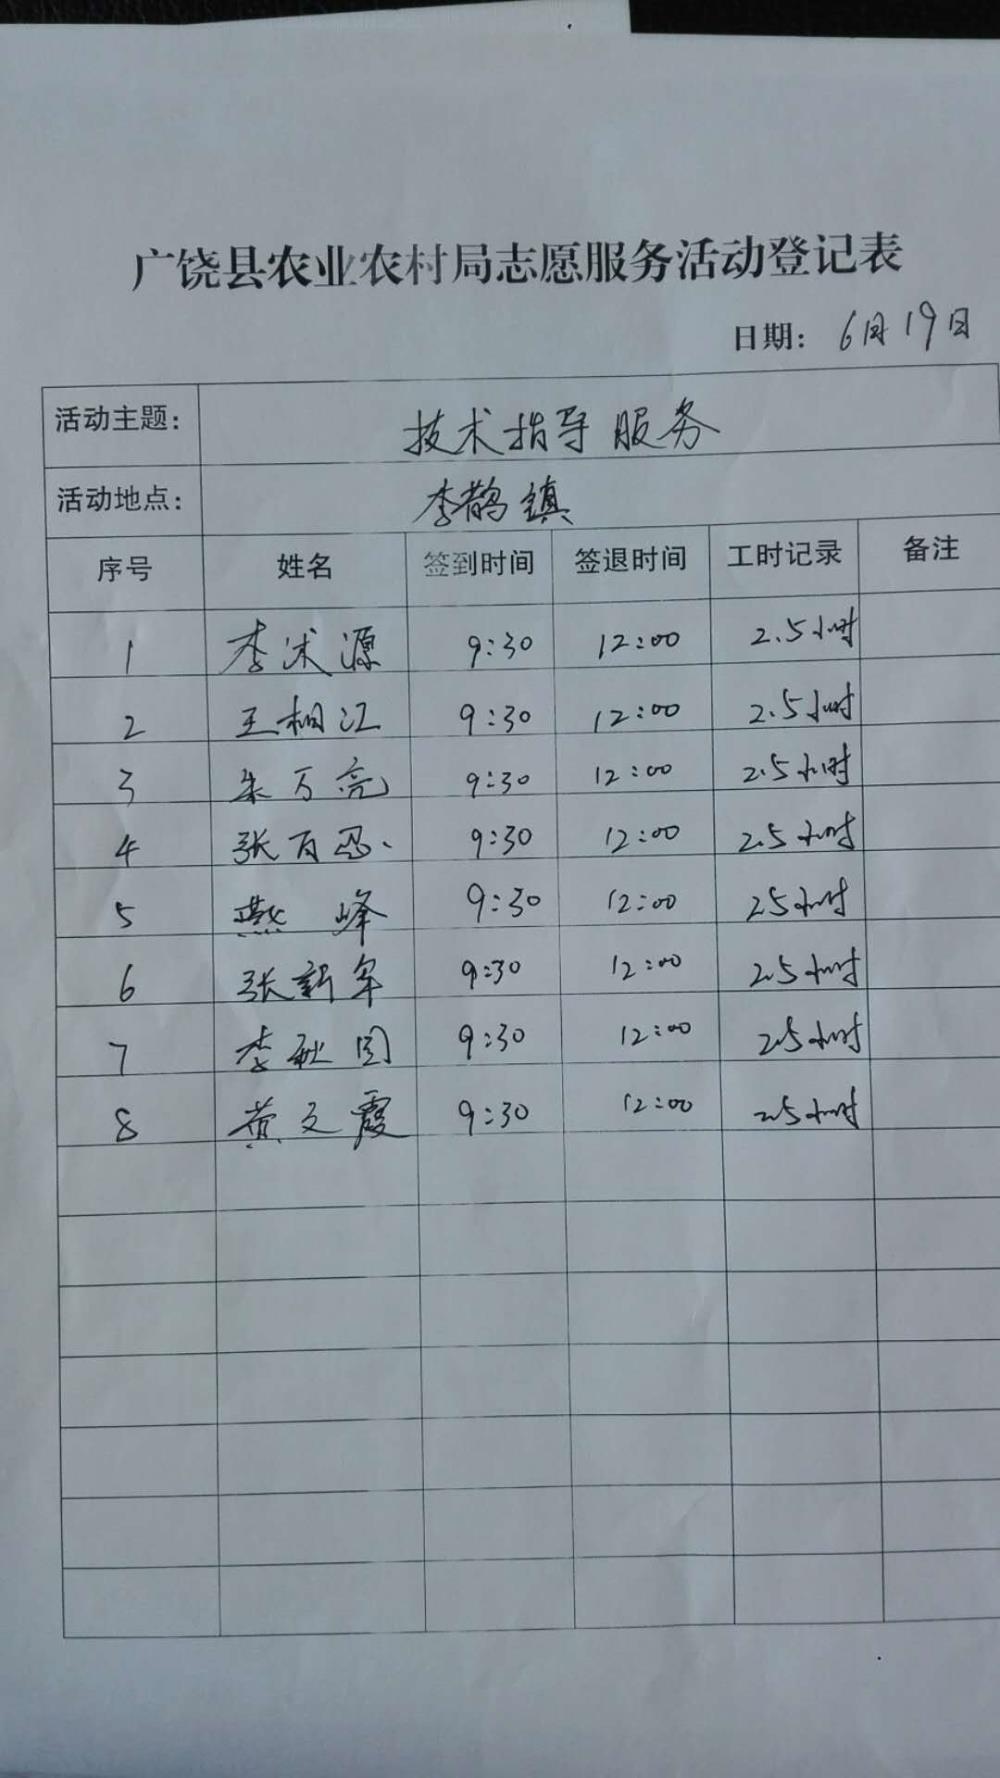 广饶县农业农村局志愿服务活动登记表
日期: 6月19日
活动主题: 技术指导服务
活动地点: 李鹊镇
序号 姓名 签到时间 签退时间 工时记录 备注
1 李沭源 9:30 12:00 2.5小时
2 王相江 9:30 12:00 2.5小时
3 朱万亮 9:30 12:00 2.5小时
4 张百忍 9:30 12:00 2.5小时
5 燕峰 9:30 12:00 2.5小时
6 张新军 9:30 12:00 2.5小时
7 李秋园 9:30 12:00 2.5小时
8 黄文霞 9:30 12:00 2.5小时